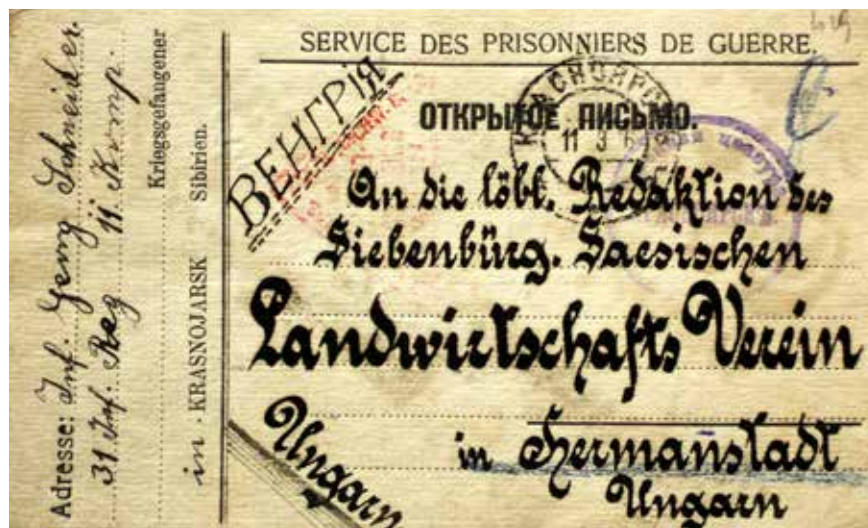 SERVICE DES PRISONNIERS DE GUERRE.
ОТКРЫТОЕ ПИСЬМО.
ВЕНГРІЯ
11 3 6
An die löbl. Redaktion des
Siebenbürg. Saesischen
Landwirtschafts Verein
in Hermanstadt
Ungarn
Ungarn
Adresse: Inf. Georg Schneider.
31. Inf. Reg 11 Komp.
Kriegsgefangener
in KRASNOJARSK Sibirien.